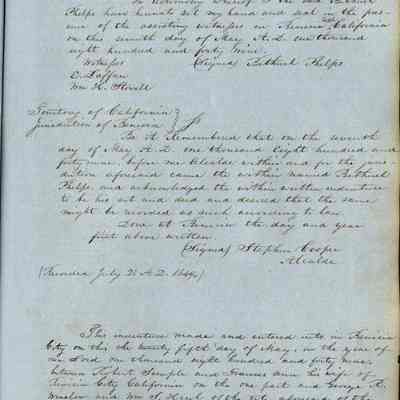 In testimony whereof I the said Bethuel
Phelps have hereunto set my hand and seal in the pres-
ence of the subscribing witnesses in Benicia California
on this seventh day of May A.D. one thousand
eight hundred and forty nine.
Witnesses (Signed) Bethuel Phelps
C. Laffan
Wm H.
Territory of California }
Jurisdiction of Benicia } ss
Be it Remembered that on the seventh
day of May A.D. one thousand Eight hundred and
forty nine, before me Alcalde within and for the juris-
diction aforesaid came the within named Bethuel
Phelps and acknowledged the within written indenture
to be his act and deed and desired that the same
might be recorded as such according to law
Done at Benicia the day and year
first above written
(Signed) Stephen Cooper
Alcalde
(Recorded July 21 A.D. 1849)
This indenture made and entered into in Benicia
City on this the twenty fifth day of May, in the year of
our Lord one thousand eight hundred and forty nine
between Robert Semple and Frances Ann his wife of
Benicia City California on the one part and George H.
Winslow and Wm S. of the city aforesaid of the